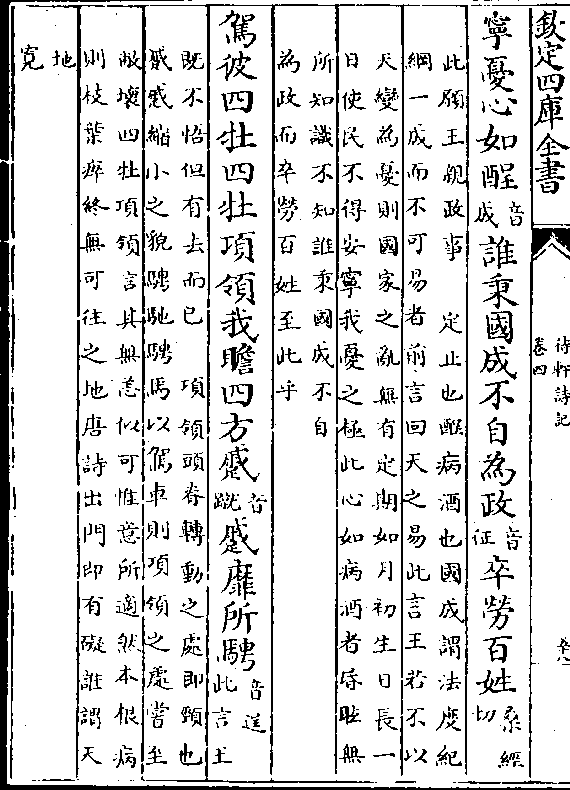 欽定四庫全書
待軒詩記
卷四
寧憂心如酲音成誰秉國成不自為政音征卒勞百姓桑經切
此願王親政事　定止也酲病酒也國成謂法度紀
綱一成而不可易者前言回天之易此言王若不以
天變為憂則國家之亂無有定期如月初生日長一
日使民不得安寧我憂之極此心如病酒者昏眊無
所知識不知誰秉國成不自
為政而卒勞百姓至此乎
駕彼四牡四牡項領我瞻四方蹙音蹴蹙靡所騁音逞此言王
既不悟但有去而已　項領頭脊轉動之處即頸也
蹙蹙縮小之貌騁馳騁馬以駕車則項領之處嘗至
敝壞四牡項領言其無恙似可惟意所適然本根病
則枝葉瘁終無可往之地唐詩出門即有礙誰謂天
地
寛